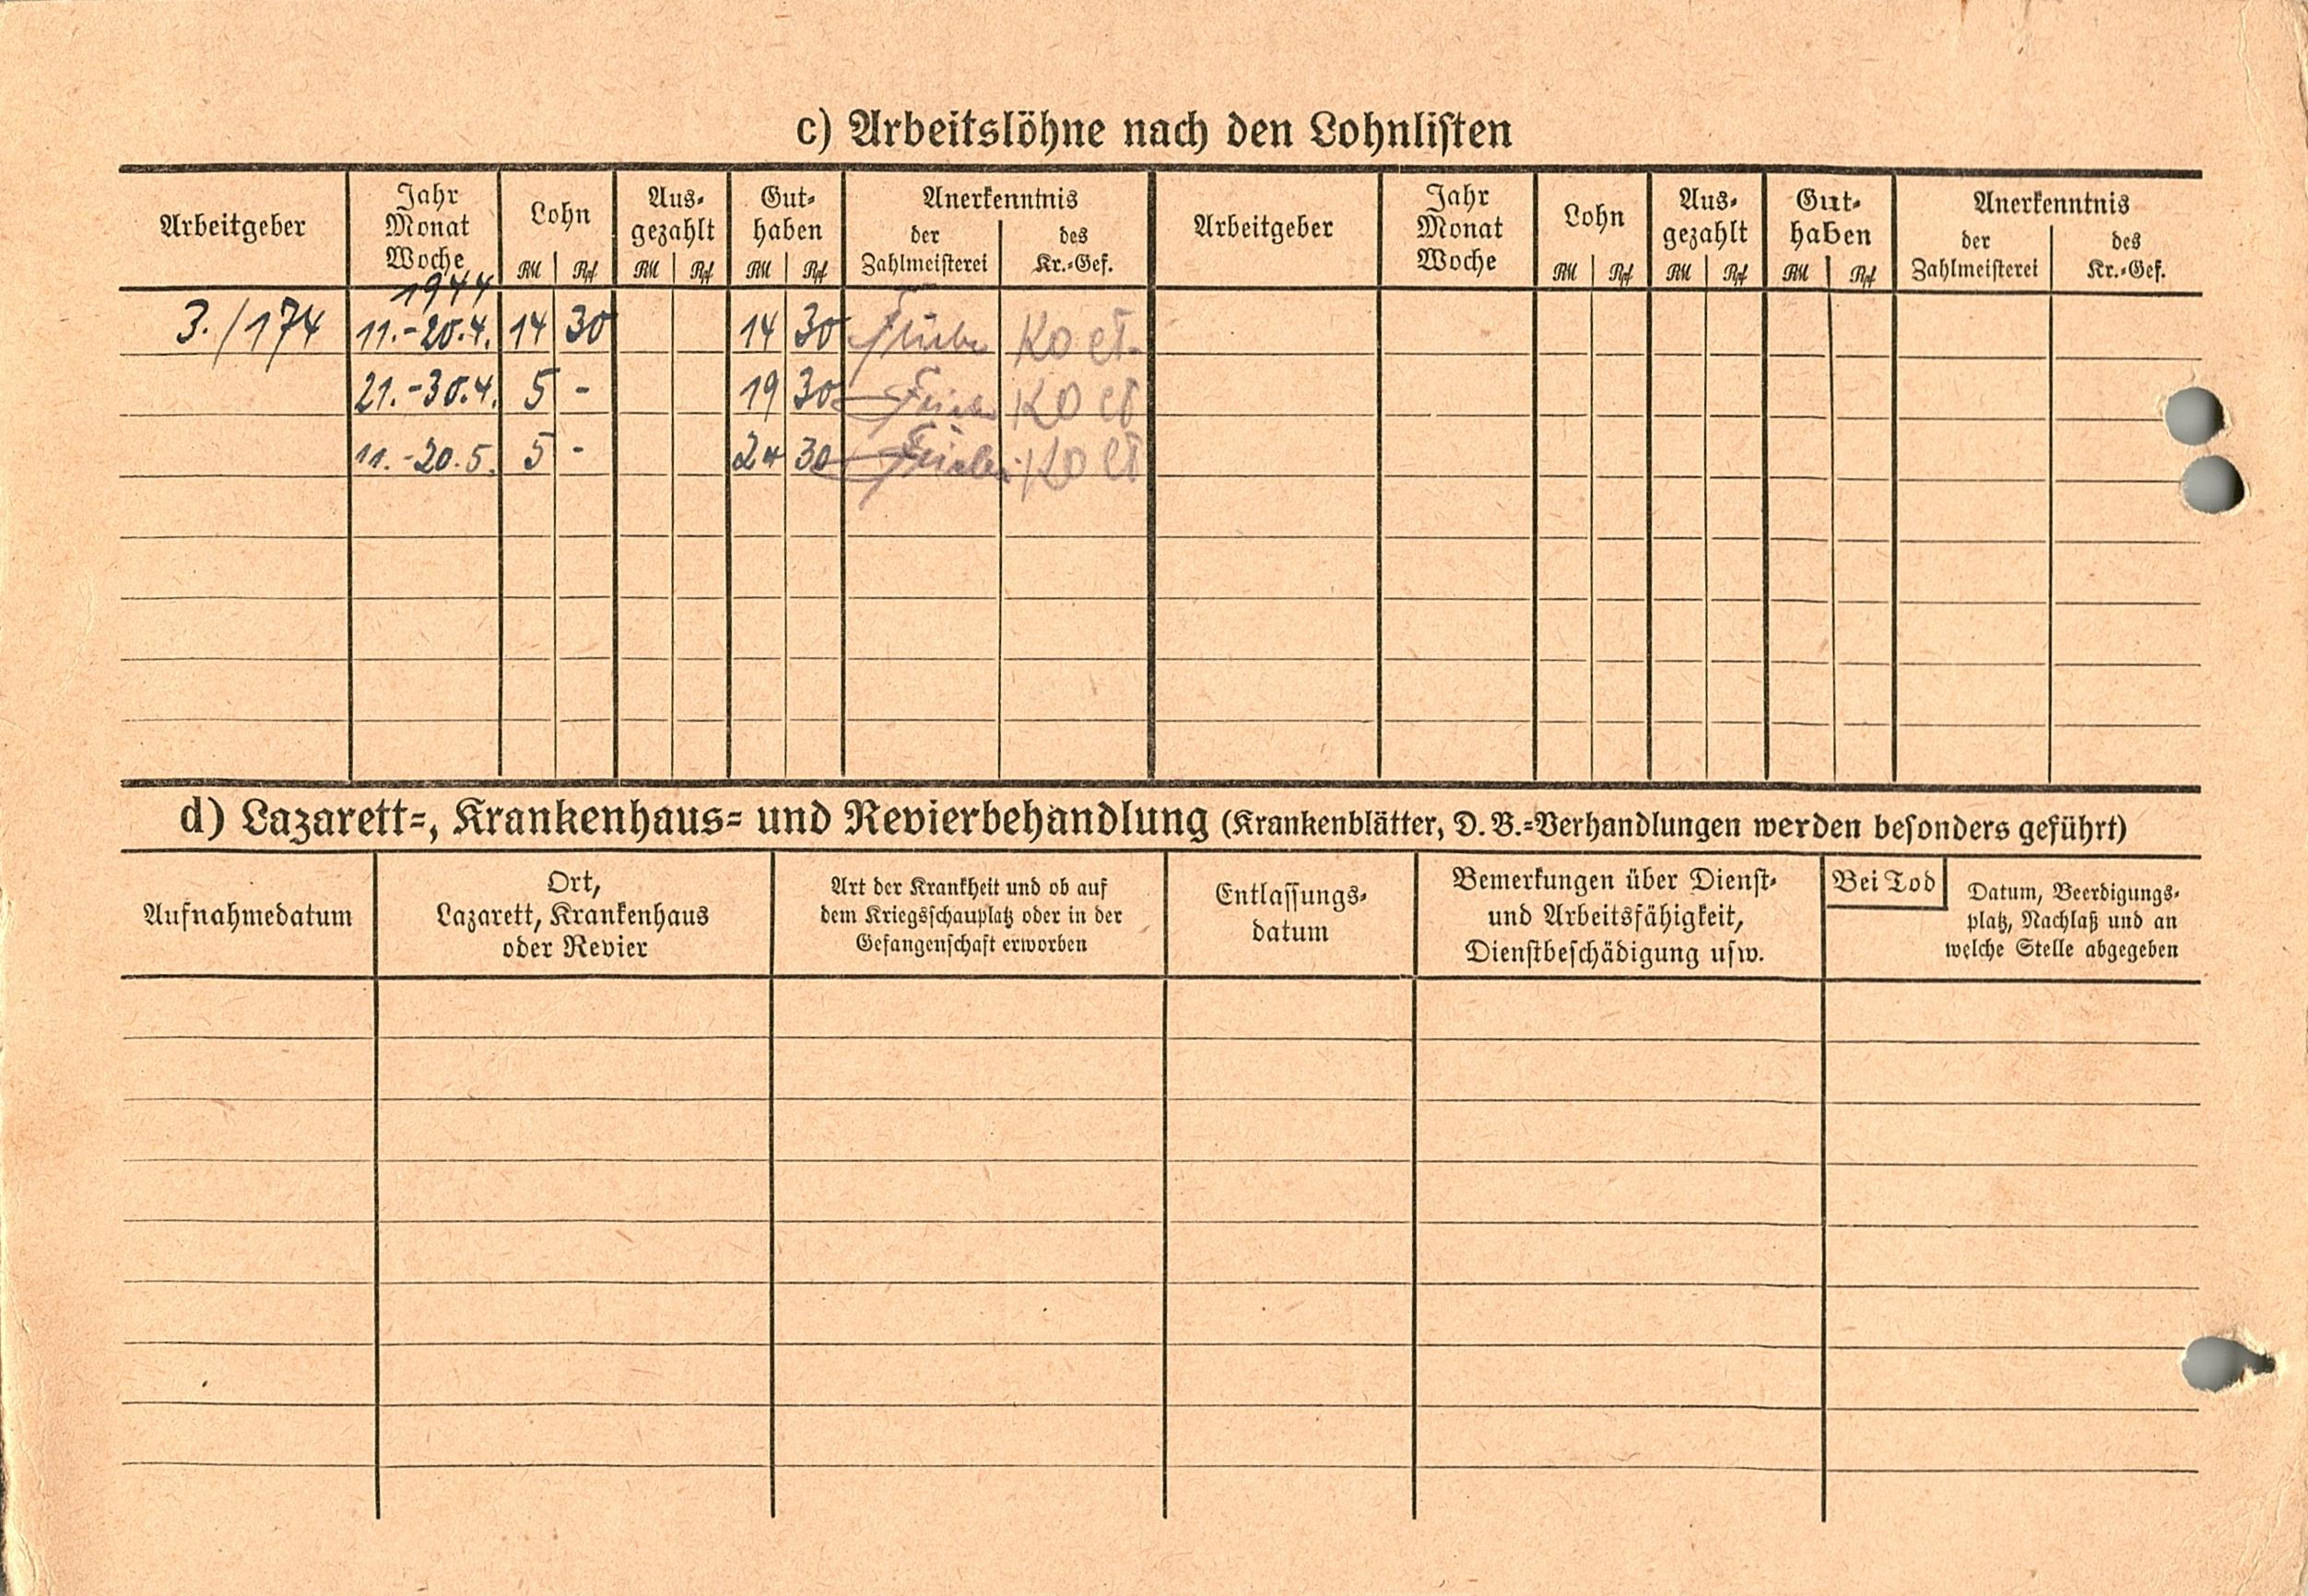 c) Arbeitslöhne nach den Lohnlisten
Arbeitgeber | Jahr Monat Woche | Lohn RM Rpf | Aus-gezahlt RM Rpf | Gut-haben RM Rpf | Anerkenntnis der Zahlmeisterei | des Kr.-Gef. | Arbeitgeber | Jahr Monat Woche | Lohn RM Rpf | Aus-gezahlt RM Rpf | Gut-haben RM Rpf | Anerkenntnis der Zahlmeisterei | des Kr.-Gef.
1944
3./174 11.-20.4. 14 30 14 30
21.-30.4. 5 - 19 30
11.-20.5. 5 - 24 30
d) Lazarett-, Krankenhaus- und Revierbehandlung (Krankenblätter, D. B.-Verhandlungen werden besonders geführt)
Aufnahmedatum | Ort, Lazarett, Krankenhaus oder Revier | Art der Krankheit und ob auf dem Kriegsschauplatz oder in der Gefangenschaft erworben | Entlassungs-datum | Bemerkungen über Dienst- und Arbeitsfähigkeit, Dienstbeschädigung usw. | Bei Tod Datum, Beerdigungs-platz, Nachlaß und an welche Stelle abgegeben